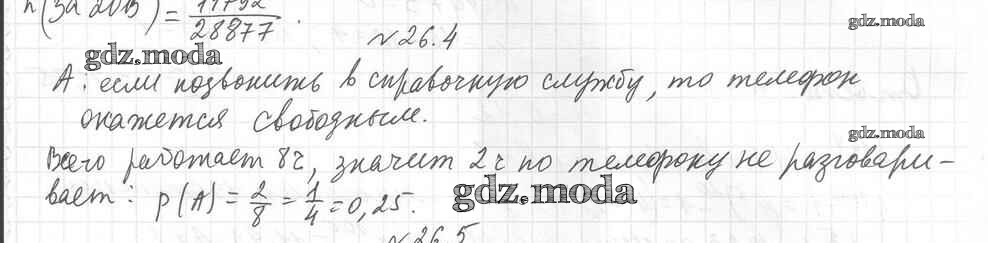 28877
№26.4
gdz.moda
gdz.moda
А: если позвонить в справочную службу, то телефон
окажется свободным.
gdz.moda
Всего работает 8ч, значит 2ч по телефону не разговари-
вает: P(A) = 2/8 = 1/4 = 0,25.
gdz.moda
№26.5